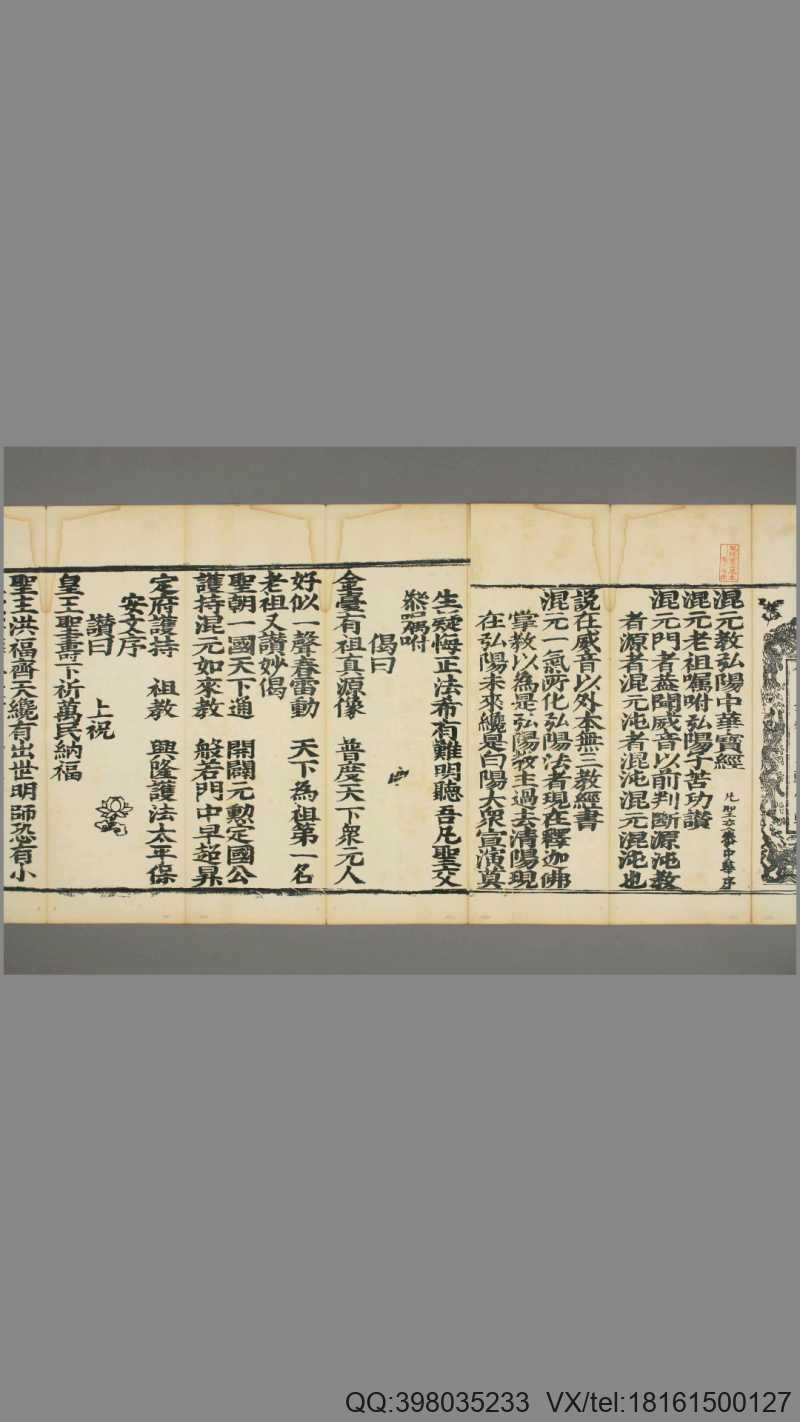 混元教弘陽中華寶經
凡聖交華中華序
混元老祖嘱咐弘陽子苦功讃
混元門者葢聞威音以前判斷源沌教
者源者混元沌者混沌混元混沌也
說在威音以外本無三教經書
混元一氣所化弘陽法者現在釋迦佛
掌教以為是弘陽教主過去清陽現
在弘陽未來纔是白陽大衆宣演莫
生疑悔正法希有難明聽吾凡聖交
嘱咐
偈曰
金臺有祖真源像 普度天下衆元人
好似一聲春雷動 天下為祖第一名
老祖又讃妙偈
聖朝一國天下通 開闢元勲定國公
護持混元如來教 般若門中早超昇
定府護持 祖教 興隆護法太平保
安文序
讃曰 上祝
皇王聖壽下祈萬民納福
聖主洪福齊天纔有出世明師恐有小
QQ:398035233 VX/tel:18161500127